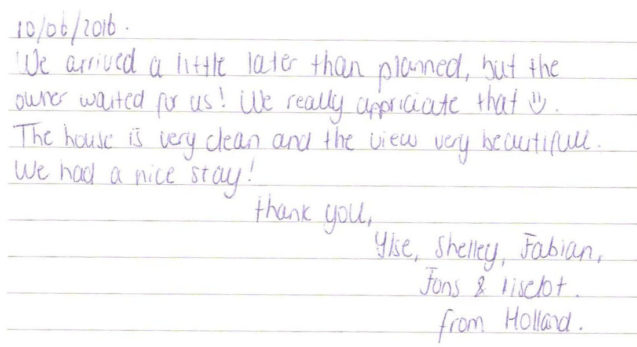 10/06/2016.
We arrived a little later than planned, but the
owner waited for us! We really appriciate that ☺.
The house is very clean and the view very beautifull.
We had a nice stay!
thank you,
Ylse, Shelley, Fabian,
Fons & liselot.
from Holland.